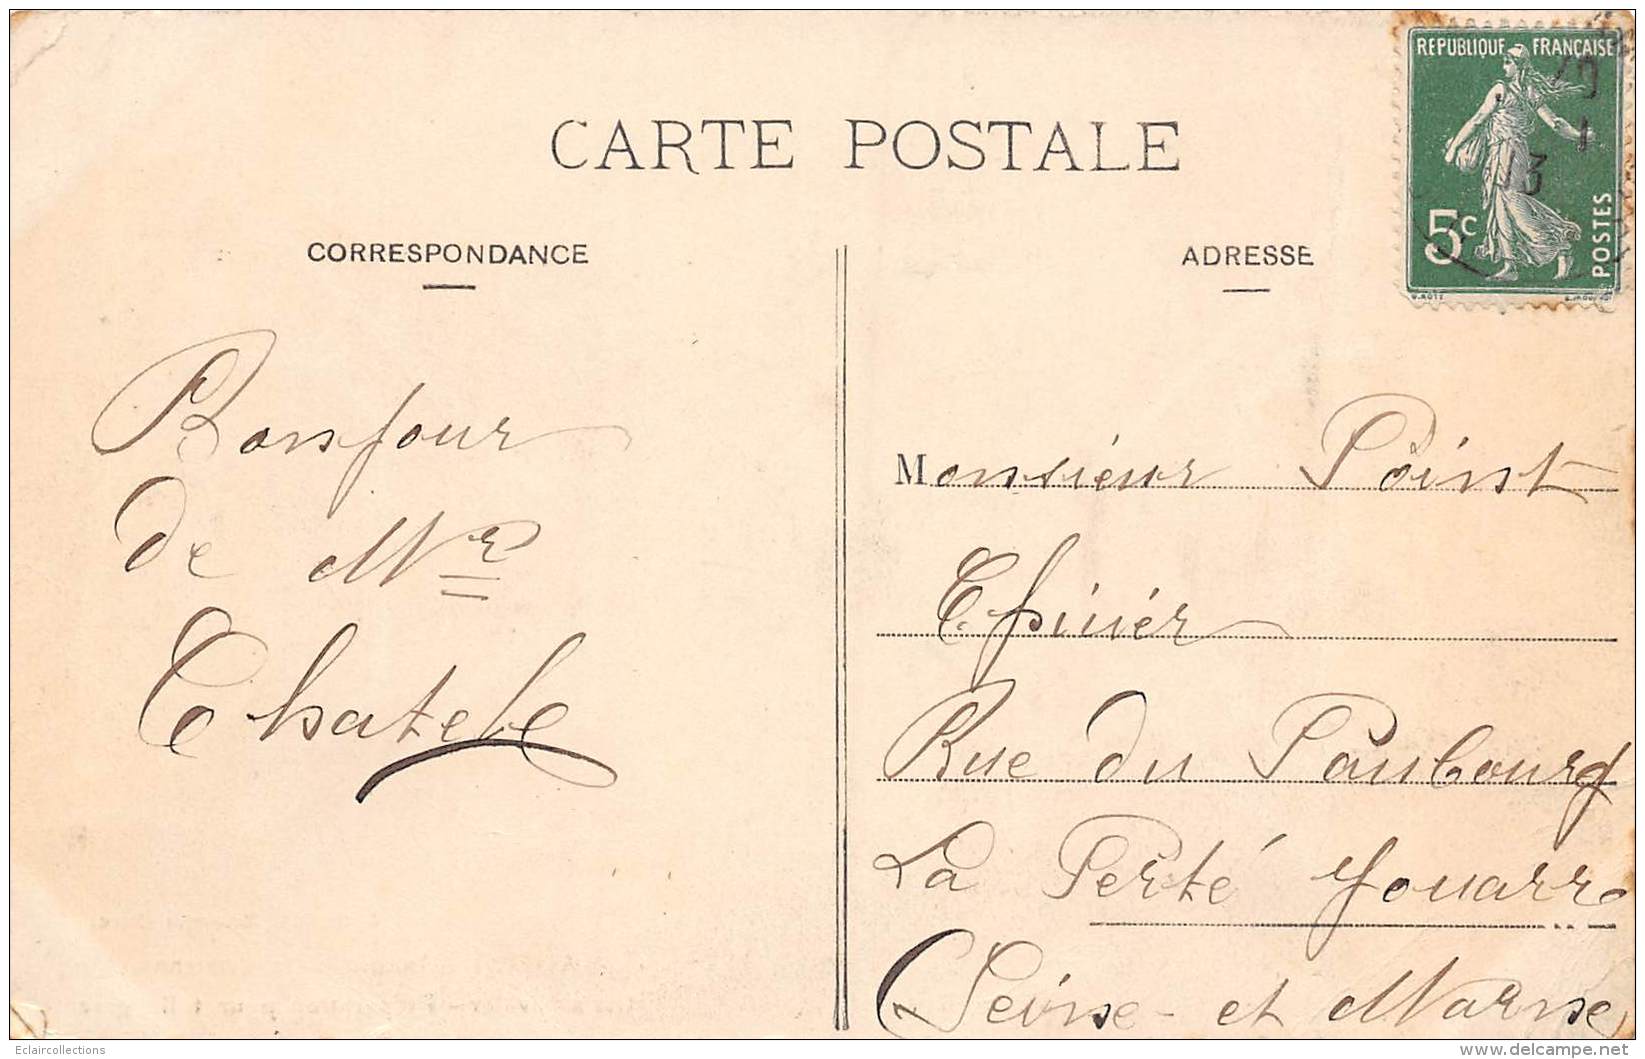 CARTE POSTALE
REPUBLIQUE FRANÇAISE
5c
POSTES
13
CORRESPONDANCE
ADRESSE
Bonjour
de Mr
Chatele
Monsieur Point
Epicier
Rue du Faubourg
La Ferté Jouarre
Seine et Marne
Eclaircollections
delcampe.net